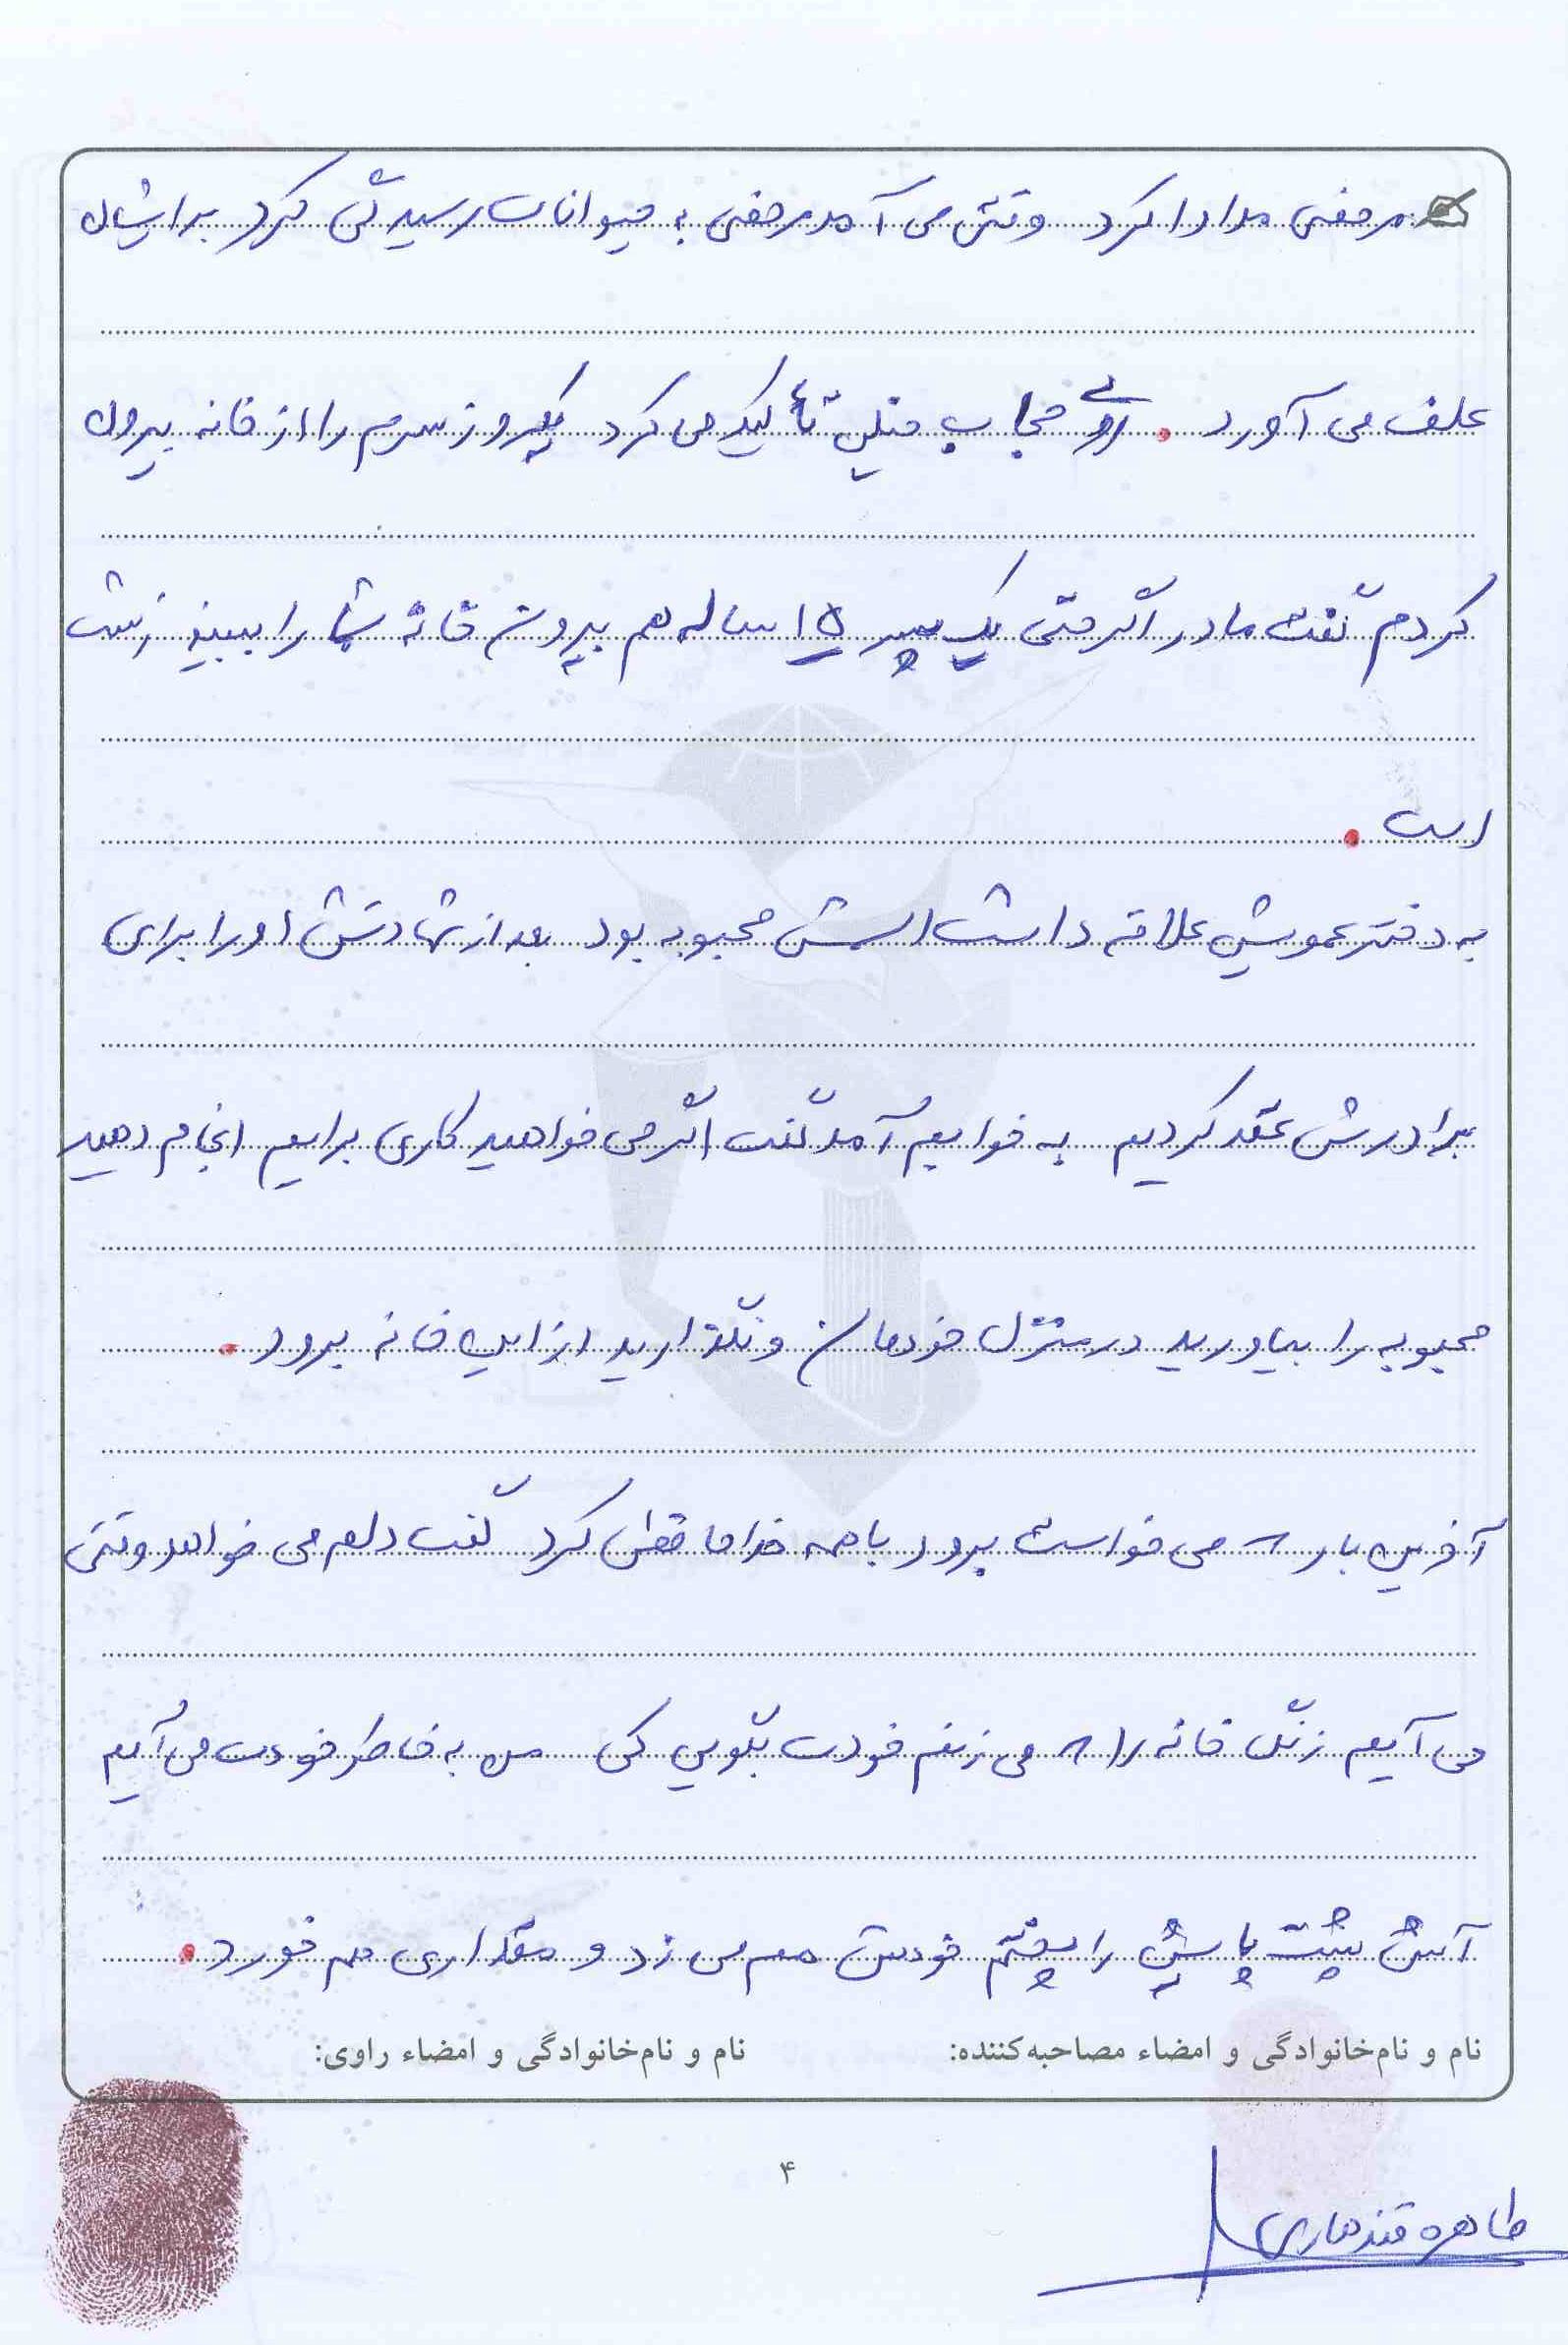 مرخصی مداوا کرد وقتی می آمد مرخصی به حیوانات رسیدگی کرد برایشان
علف می آورد . روی حجاب خیلی تأکید می کرد یکروز سرم را از خانه بیرون
کردم گفت مادر اگر حتی یک پسر ۱۵ ساله هم بیرون خانه شما را ببیند زشت
است .
به دختر عمویش علاقه داشت اسمش محبوبه بود بعد از شهادتش او را برای
برادرش عقد کردیم به خوابم آمد گفت اگر می خواهید کاری برایم انجام دهید
محبوبه را بیاورید در منزل خودمان و نگذارید از این خانه برود .
آخرین بار که می خواست برود با همه خداحافظی کرد گفت دلم می خواهد وقتی
می آیم زنگ خانه را که می زنم خودت بگویی کی من به خاطر خودت می آیم
آبش پشت پایش را چشم خودش هم می زد و مقداری هم خورد .
نام و نام‌خانوادگی و امضاء مصاحبه‌کننده: نام و نام‌خانوادگی و امضاء راوی:
۴
طاهره قندهاری